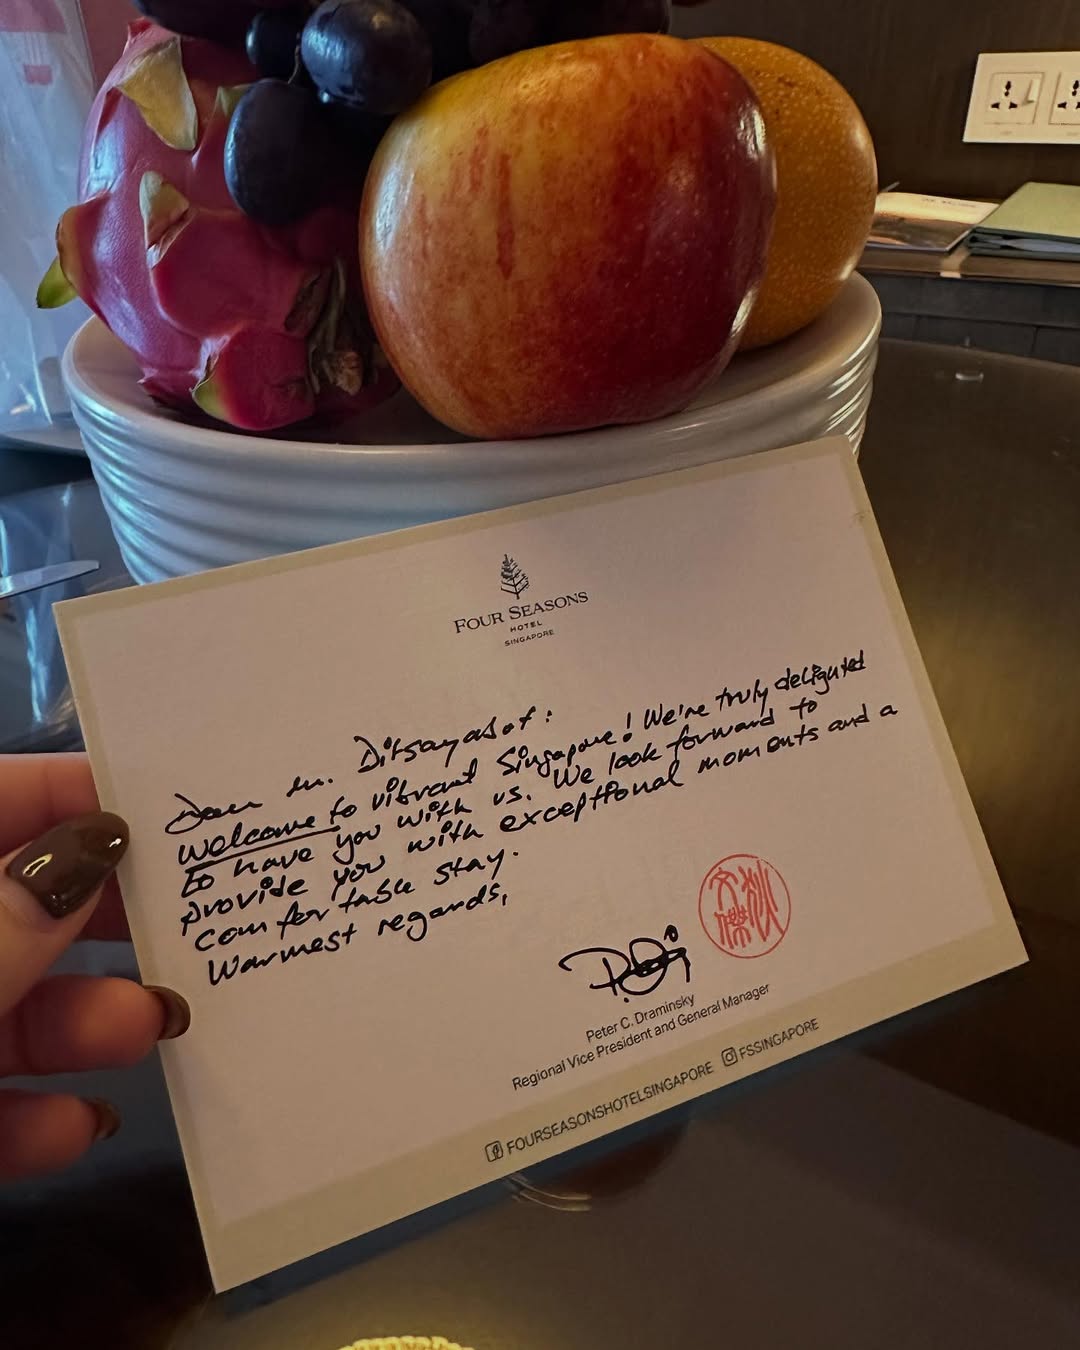 FOUR SEASONS
HOTEL
SINGAPORE
Dear m. Ditsayabot:
Welcome to vibrant Singapore! We're truly delighted
to have you with us. We look forward to
provide you with exceptional moments and a
comfortable stay.
Warmest regards,
Peter C. Draminsky
Regional Vice President and General Manager
FOURSEASONSHOTELSINGAPORE FSSINGAPORE